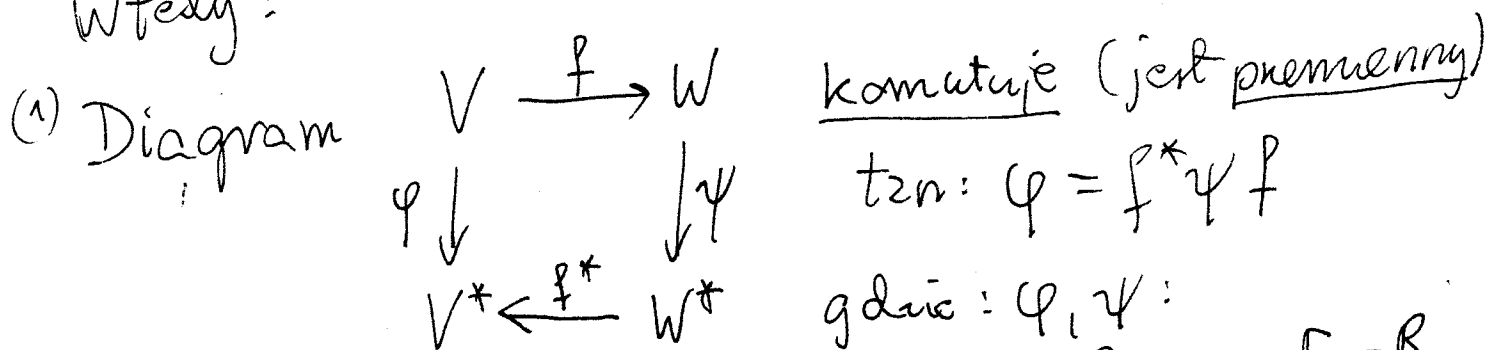 Wtedy:
(1) Diagram V f W komutuje (jest przemienny)
φ ψ tzn: φ = f*ψ f
V* f* W* gdzie: φ, ψ: